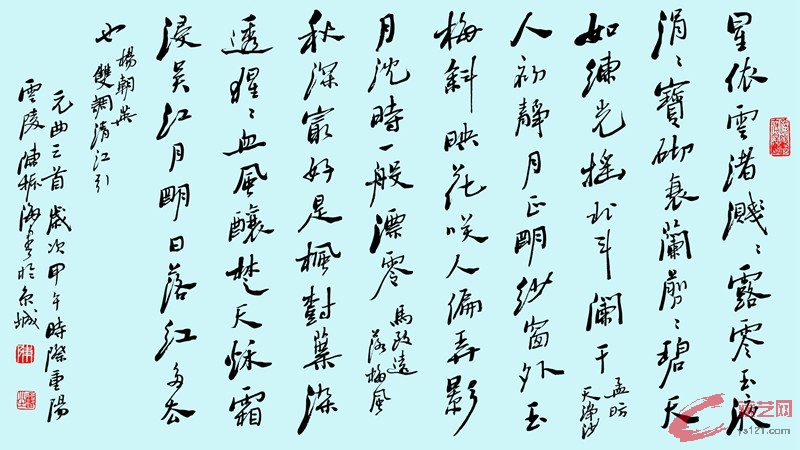 星依雲渚濺〻露零玉液
涓〻寶砌衰蘭剪〻碧天
如練光摇北斗闌干
孟昉
天净沙
人初靜月正明紗窗外玉
梅斜映花咲人偏弄影
月沈時一般漂零
馬致遠
落梅風
秋深最好是楓樹葉染
透猩〻血風釀楚天秋霜
浸吴江月明日落紅多去
也
楊朝英
雙調清江引
元曲三首歲次甲午時際重陽
雲陵陳振海書於京城
艺网
ys121.com